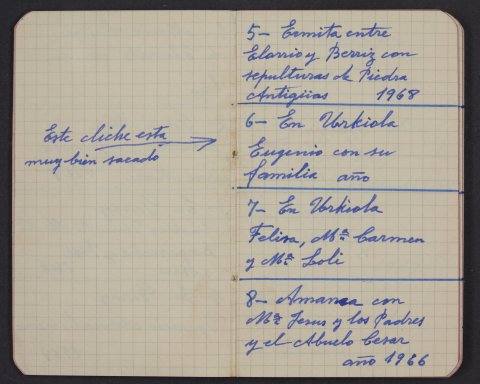 Este cliche esta
muy bien sacado
5- Ermita entre
Elorrio y Berriz con
sepulturas de Piedra
Antigüas 1968
6- En Urkiola
Eugenio con su
familia año
7- En Urkiola
Felisa, Mª Carmen
y Mª Loli
8- Amanea con
Mª Jesus y los Padres
y el Abuelo Cesar
año 1966